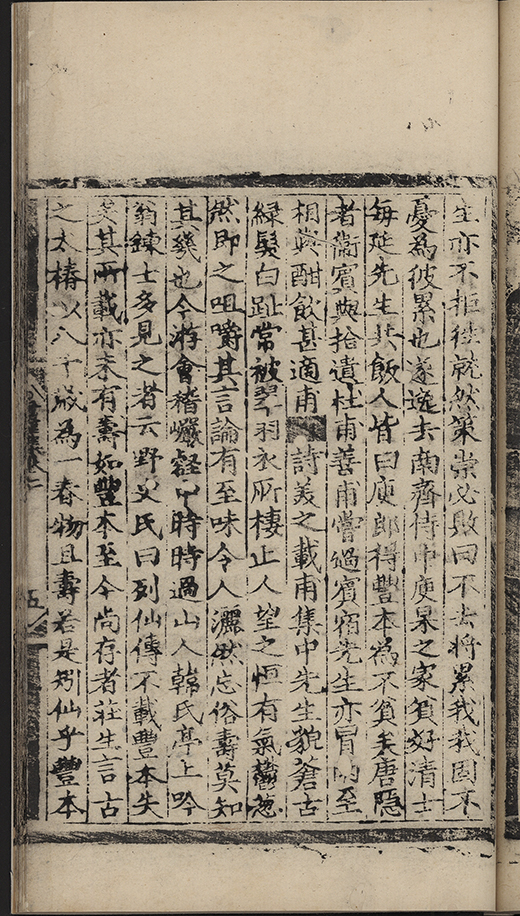 生亦不拒徃就然策崇必敗曰不去将累我我固不
憂為彼累也遂逸去南齊侍中庾杲之家貧好清士
每延先生共飯人皆曰庾郎得豐本為不貧矣唐隱
者衛賔與拾遺杜甫善甫嘗過賔宿先生亦冒雨至
相與酣飲甚適甫詩美之載甫集中先生貌蒼古
緑髮白趾常被翠羽衣所棲止人望之恒有氣鬱葱
然即之咀嚼其言論有至味令人灑然忘俗壽莫知
其幾也今游會稽巖壑中時時過山人韓氏亭上吟
翁鍊士多見之者云野史氏曰列仙傳不載豐本失
矣其所載亦未有壽如豐本至今尚存者莊生言古
之大椿以八千歲為一春物且壽若是矧仙乎豐本
五